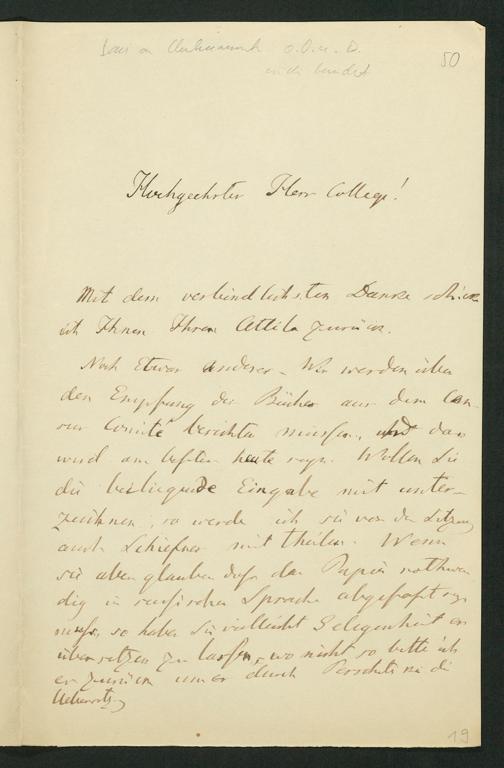 o. O. u. D.
50
Hochgeehrter Herr College!
Mit dem verbindlichsten Danke schicke
ich Ihnen Ihren Attila zurück.
Noch Etwas anderes. Wir werden über
den Empfang der Bücher aus dem Cen-
sur Comité berichten müssen, und das
wird am besten heute seyn. Wollen Sie
die beiliegende Eingabe mit unter-
zeichnen, so werde ich sie vor der Sitzung
auch Schiefner mittheilen. Wenn
sie aber glauben dass das Papier nothwen
dig in russischer Sprache abgefasst seyn
muss, so haben Sie vielleicht Gelegenheit es
übersetzen zu lassen, wo nicht so bitte ich
es zurück um es durch Perschetsky die
Uebersetzg
19